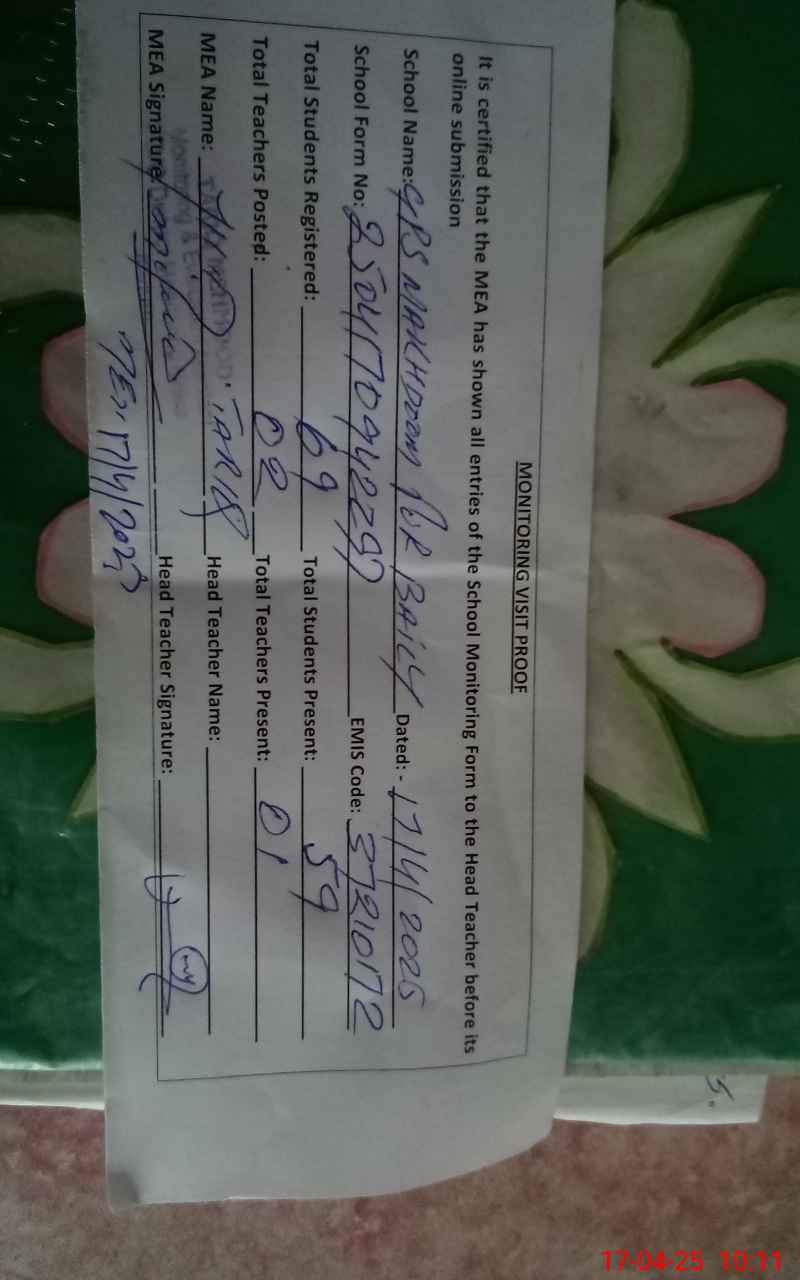 MONITORING VISIT PROOF
It is certified that the MEA has shown all entries of the School Monitoring Form to the Head Teacher before its
online submission
School Name: GPS MAKHDOOM PUR BAILY Dated: - 17/4/2025
School Form No: EMIS Code: 37210172
Total Students Registered: 69 Total Students Present: 59
Total Teachers Posted: 02 Total Teachers Present: 01
MEA Name: TARIQ Head Teacher Name:
MEA Signature Head Teacher Signature:
17/4/2025
5.
17-04-25 10:11